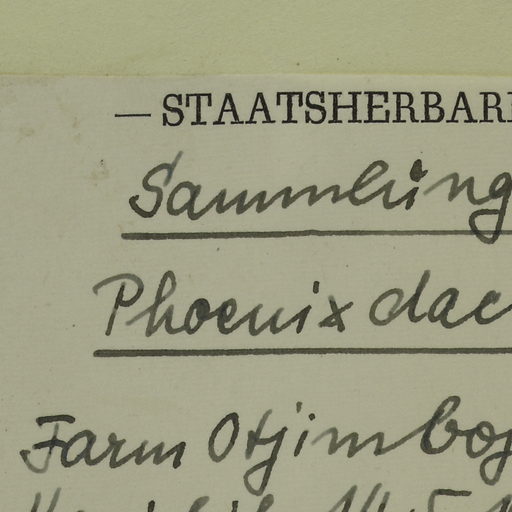 — STAATSHERBAR
Sammlung
Phoenix dac
Farm Otjimboj